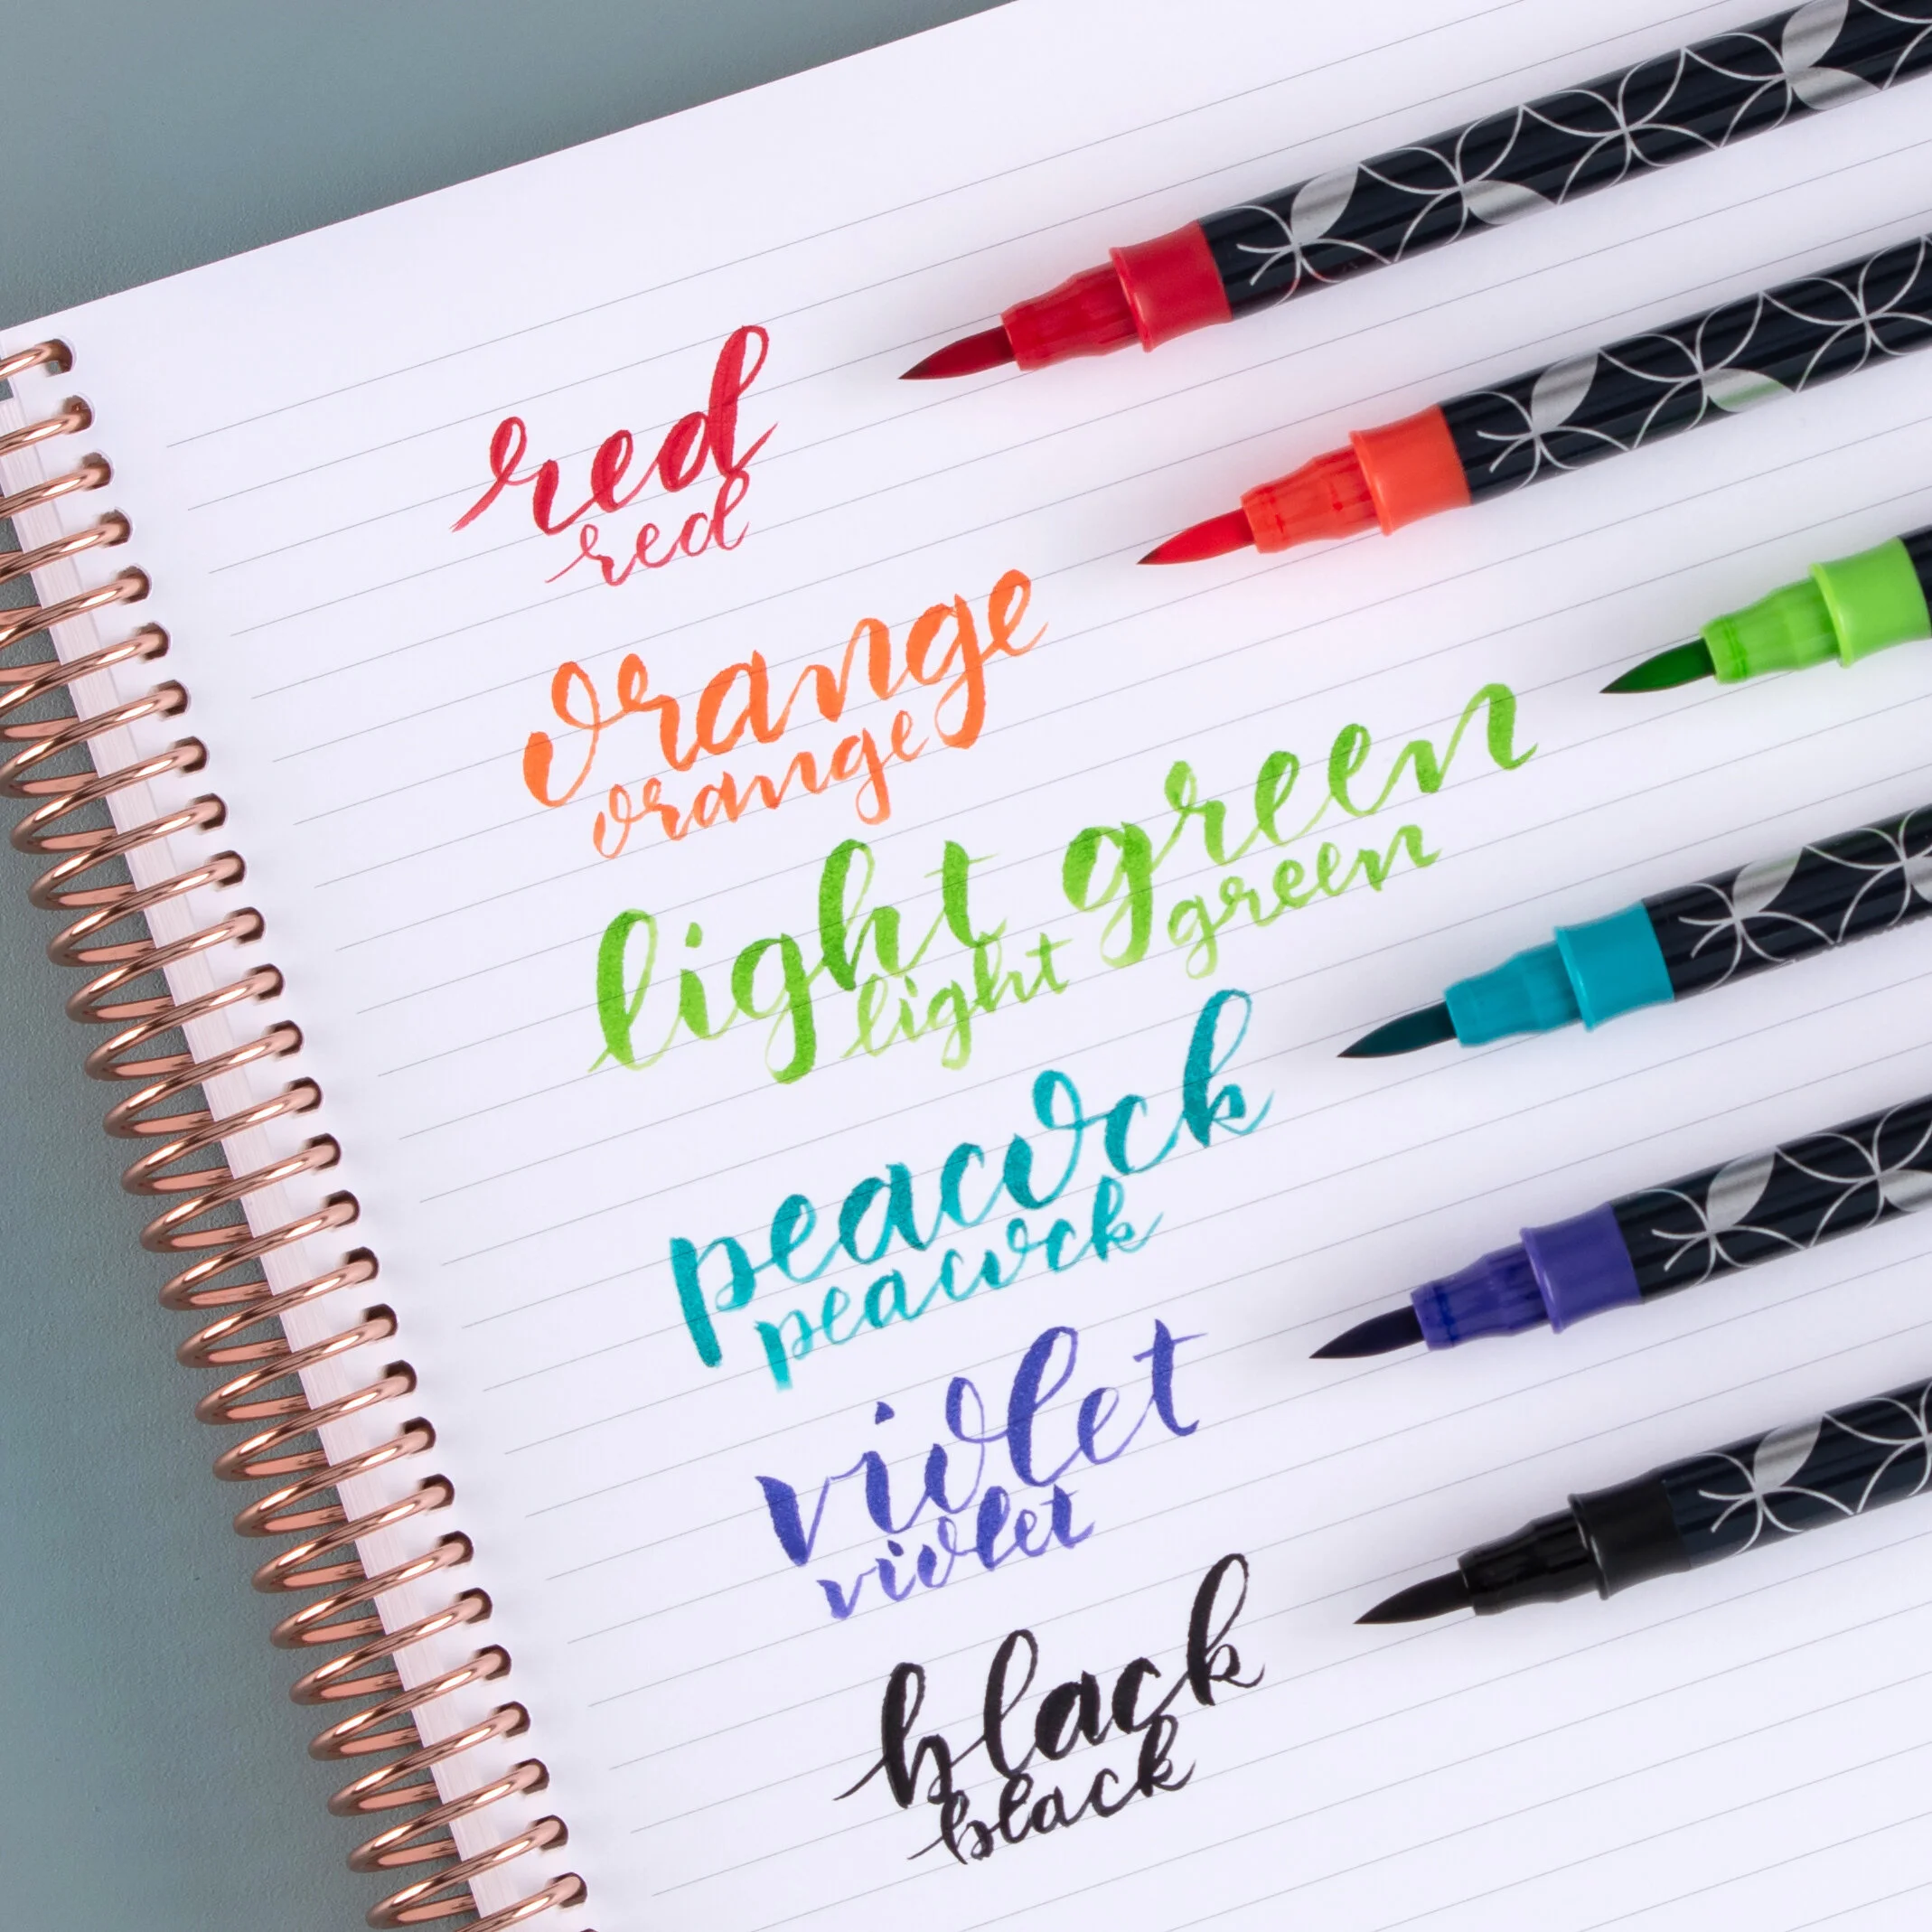 red
red
orange
orange
light green
light green
peacock
peacock
violet
violet
black
black